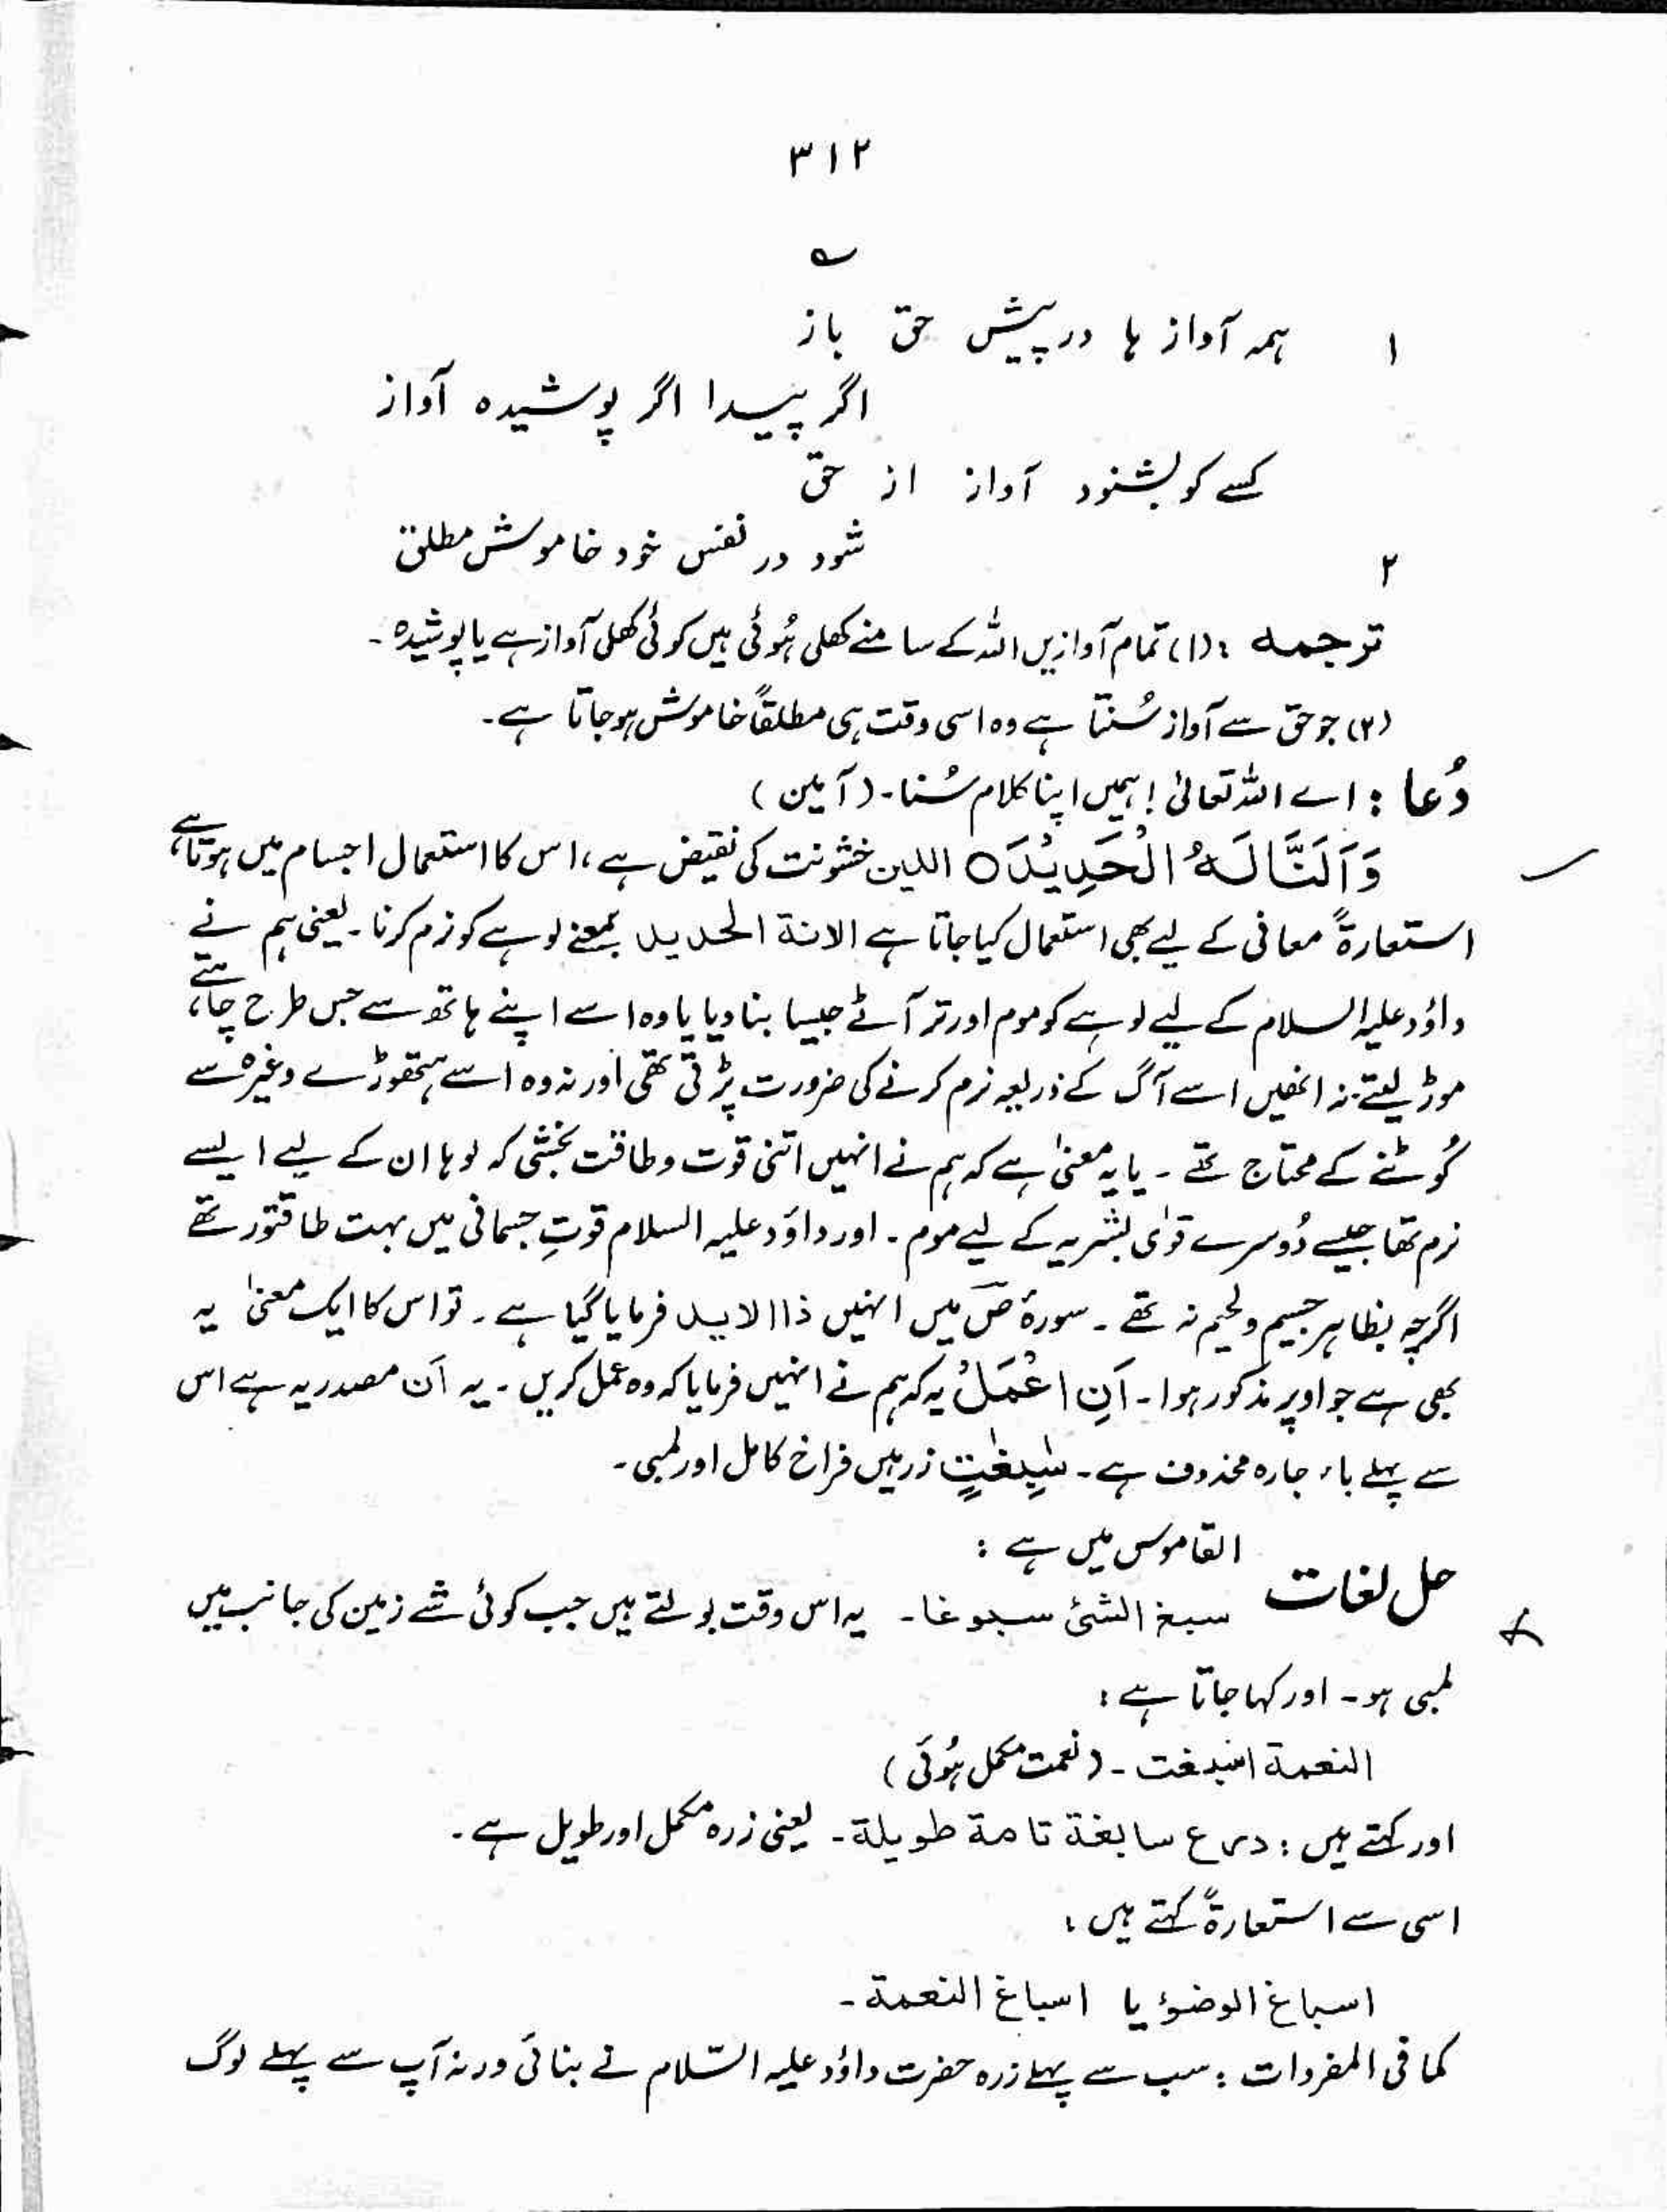 ۳۱۲
؎
۱ ہمہ آواز ہا در پیش حق باز
اگر پیدا اگر پوشیدہ آواز
کسے کو بشنود آواز از حق
۲ شود در نفس خود خاموش مطلق
ترجمہ : (۱) تمام آوازیں اللہ کے سامنے کھلی ہُوئی ہیں کوئی کھلی آواز ہے یا پوشیدہ ۔
(۲) جو حق سے آواز سُنتا ہے وہ اسی وقت ہی مطلقاً خاموش ہو جاتا ہے ۔
دُعا : اے اللہ تعالیٰ ! ہمیں اپنا کلام سُنا ۔ (آمین)
وَاَلَنَّا لَهُ الْحَدِيْدَ ۝ اللین خشونت کی نقیض ہے ، اس کا استعمال اجسام میں ہوتا ہے ،
استعارۃً معانی کے لیے بھی استعمال کیا جاتا ہے الانۃ الحدید بمعنے لوہے کو نرم کرنا ۔ یعنی ہم نے
داؤد علیہ السلام کے لیے لوہے کو موم اور تر آٹے جیسا بنا دیا یا وہ اسے اپنے ہاتھ سے جس طرح چاہتے ،
موڑ لیتے نہ انھیں اسے آگ کے ذریعہ نرم کرنے کی ضرورت پڑتی تھی اور نہ وہ اسے ہتھوڑے وغیرہ سے
کُوٹنے کے محتاج تھے ۔ یا یہ معنیٰ ہے کہ ہم نے انہیں اتنی قوت و طاقت بخشی کہ لوہا ان کے لیے ایسے
نرم تھا جیسے دُوسرے قوٰی بشریہ کے لیے موم ۔ اور داؤد علیہ السلام قوتِ جسمانی میں بہت طاقتور تھے
اگرچہ بظاہر جسیم و لحیم نہ تھے ۔ سورۂ صٓ میں انہیں ذا الاید فرمایا گیا ہے ۔ تو اس کا ایک معنیٰ یہ
بھی ہے جو اوپر مذکور ہوا ۔ اَنِ اعْمَلْ یہ کہ ہم نے انہیں فرمایا کہ وہ عمل کریں ۔ یہ اَن مصدریہ ہے اس
سے پہلے باء جارہ محذوف ہے ۔ سٰبِغٰتٍ زرہیں فراخ کامل اور لمبی ۔
القاموس میں ہے :
حل لغات سبغ الشئ سبوغا ۔ یہ اس وقت بولتے ہیں جب کوئی شے زمین کی جانب میں
لمبی ہو ۔ اور کہا جاتا ہے :
النعمۃ اسبغت ۔ (نعمت مکمل ہُوئی)
اور کہتے ہیں : درع سابغۃ تامۃ طویلۃ ۔ یعنی زرہ مکمل اور طویل ہے ۔
اسی سے استعارۃً کہتے ہیں :
اسباغ الوضوٴ یا اسباغ النعمۃ ۔
کما فی المفردات : سب سے پہلے زرہ حضرت داؤد علیہ السّلام نے بنائی ورنہ آپ سے پہلے لوگ